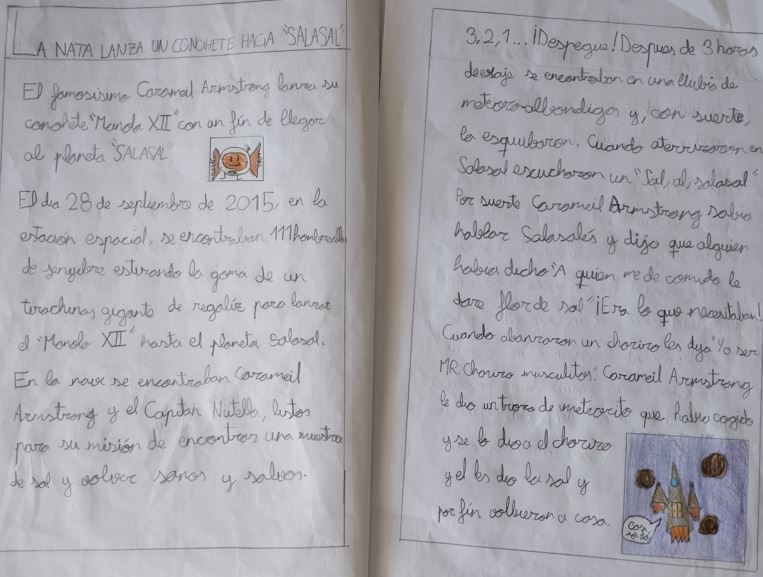 LA NATA LANZA UN CONOHETE HACIA "SALASAL"
El famosisimo Caramal Armstrong lanza su
conohete "Manolo XII" con un fin de llegar
al planeta "SALASAL"
El dia 28 de septiembre de 2015, en la
estación espacial, se encontraban 111 hombrecillos
de gengibre estirando la goma de un
tirachinas gigante de regaliz para lanzar
el "Manolo XII" hasta el planeta Salasal.
En la nave se encontraban Carameil
Armstrong y el Capitan Nutella, listos
para su misión de encontrar una muestra
de sal y volver sanos y salvos.
3, 2, 1... ¡Despegue! Despues de 3 horas
de viaje se encontraban en una llubia de
meteoro-albondigas y, con suerte,
la esquibaron. Cuando aterrizaron en
Salasal escucharon un "Sal, al, salasal"
Por suerte Carameil Armstrong sabia
hablar Salasalés y dijo que alguien
habia dicho "A quien me de comida le
dare flor de sal" ¡Era lo que necesitaban!
Cuando abanzaron un chorizo les dijo "Yo ser
MR. Chorizo musculitos". Carameil Armstrong
le dio un trozo de meteorito que habia cogido
y se lo dio a el chorizo
y el les dio la sal y
por fin volvieron a casa.